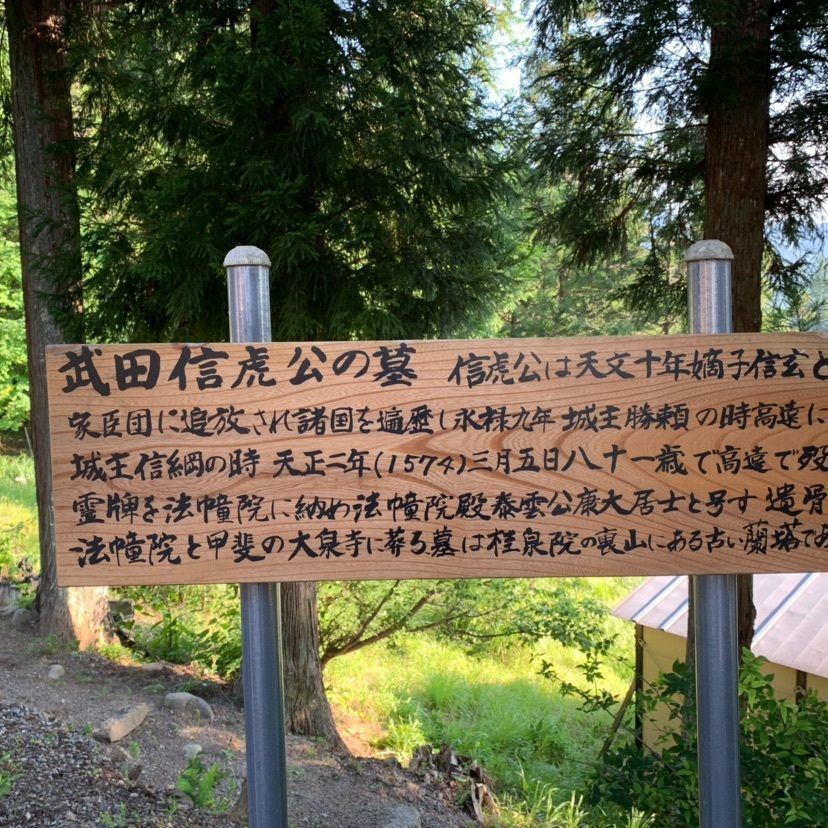 武田信虎公の墓 信虎公は天文十年嫡子信玄と
家臣団に追放され諸国を遍歴し永禄九年 城主勝頼の時高遠に
城主信綱の時 天正二年(1574)三月五日八十一歳で高遠で歿
霊牌を法幢院に納め法幢院殿泰雲公康大居士と号す 遺骨
法幢院と甲斐の大泉寺に葬る墓は桂泉院の裏山にある古い蘭塔であ